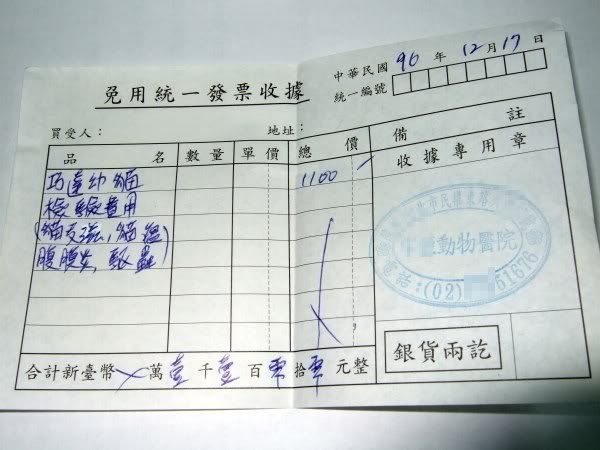 中華民國 96 年 12 月 17 日
統一編號
免用統一發票收據
買受人： 地址：
品名 數量 單價 總價 備註
巧達幼貓 1100 收據專用章
檢驗費用
(貓愛滋,貓瘟
腹膜炎,
動物醫院
電話：(02) 61676
銀貨兩訖
合計新臺幣 萬壹千壹百零拾零元整